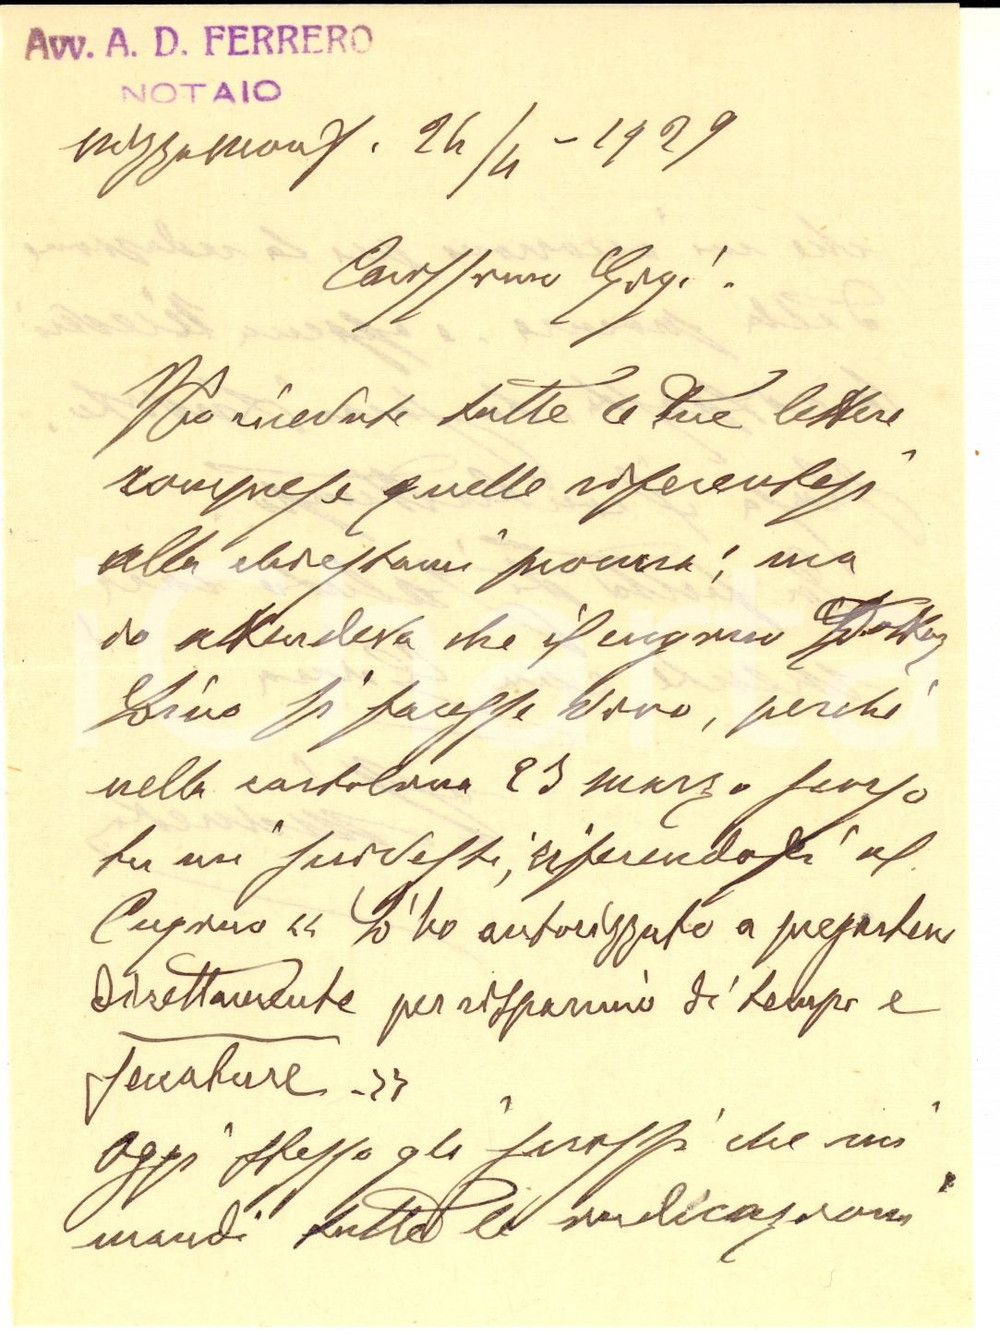 Avv. A. D. FERRERO
NOTAIO
Nizza Monf. 24/4 - 1929
Carissimo Gigi.
Ho ricevute tutte le tue lettere
comprese quelle riferentesi
alla chiestami procura; ma
io attendeva che il cugino
Livio si facesse vivo, perché
nella cartolina 23 marzo scorso
tu mi scrivesti, riferendosi al
Cugino « Lo ho autorizzato a
direttamente per risparmio di tempo e
seccature - »
Oggi stesso gli scrissi che mi
mandi tutte le indicazioni
iCharta